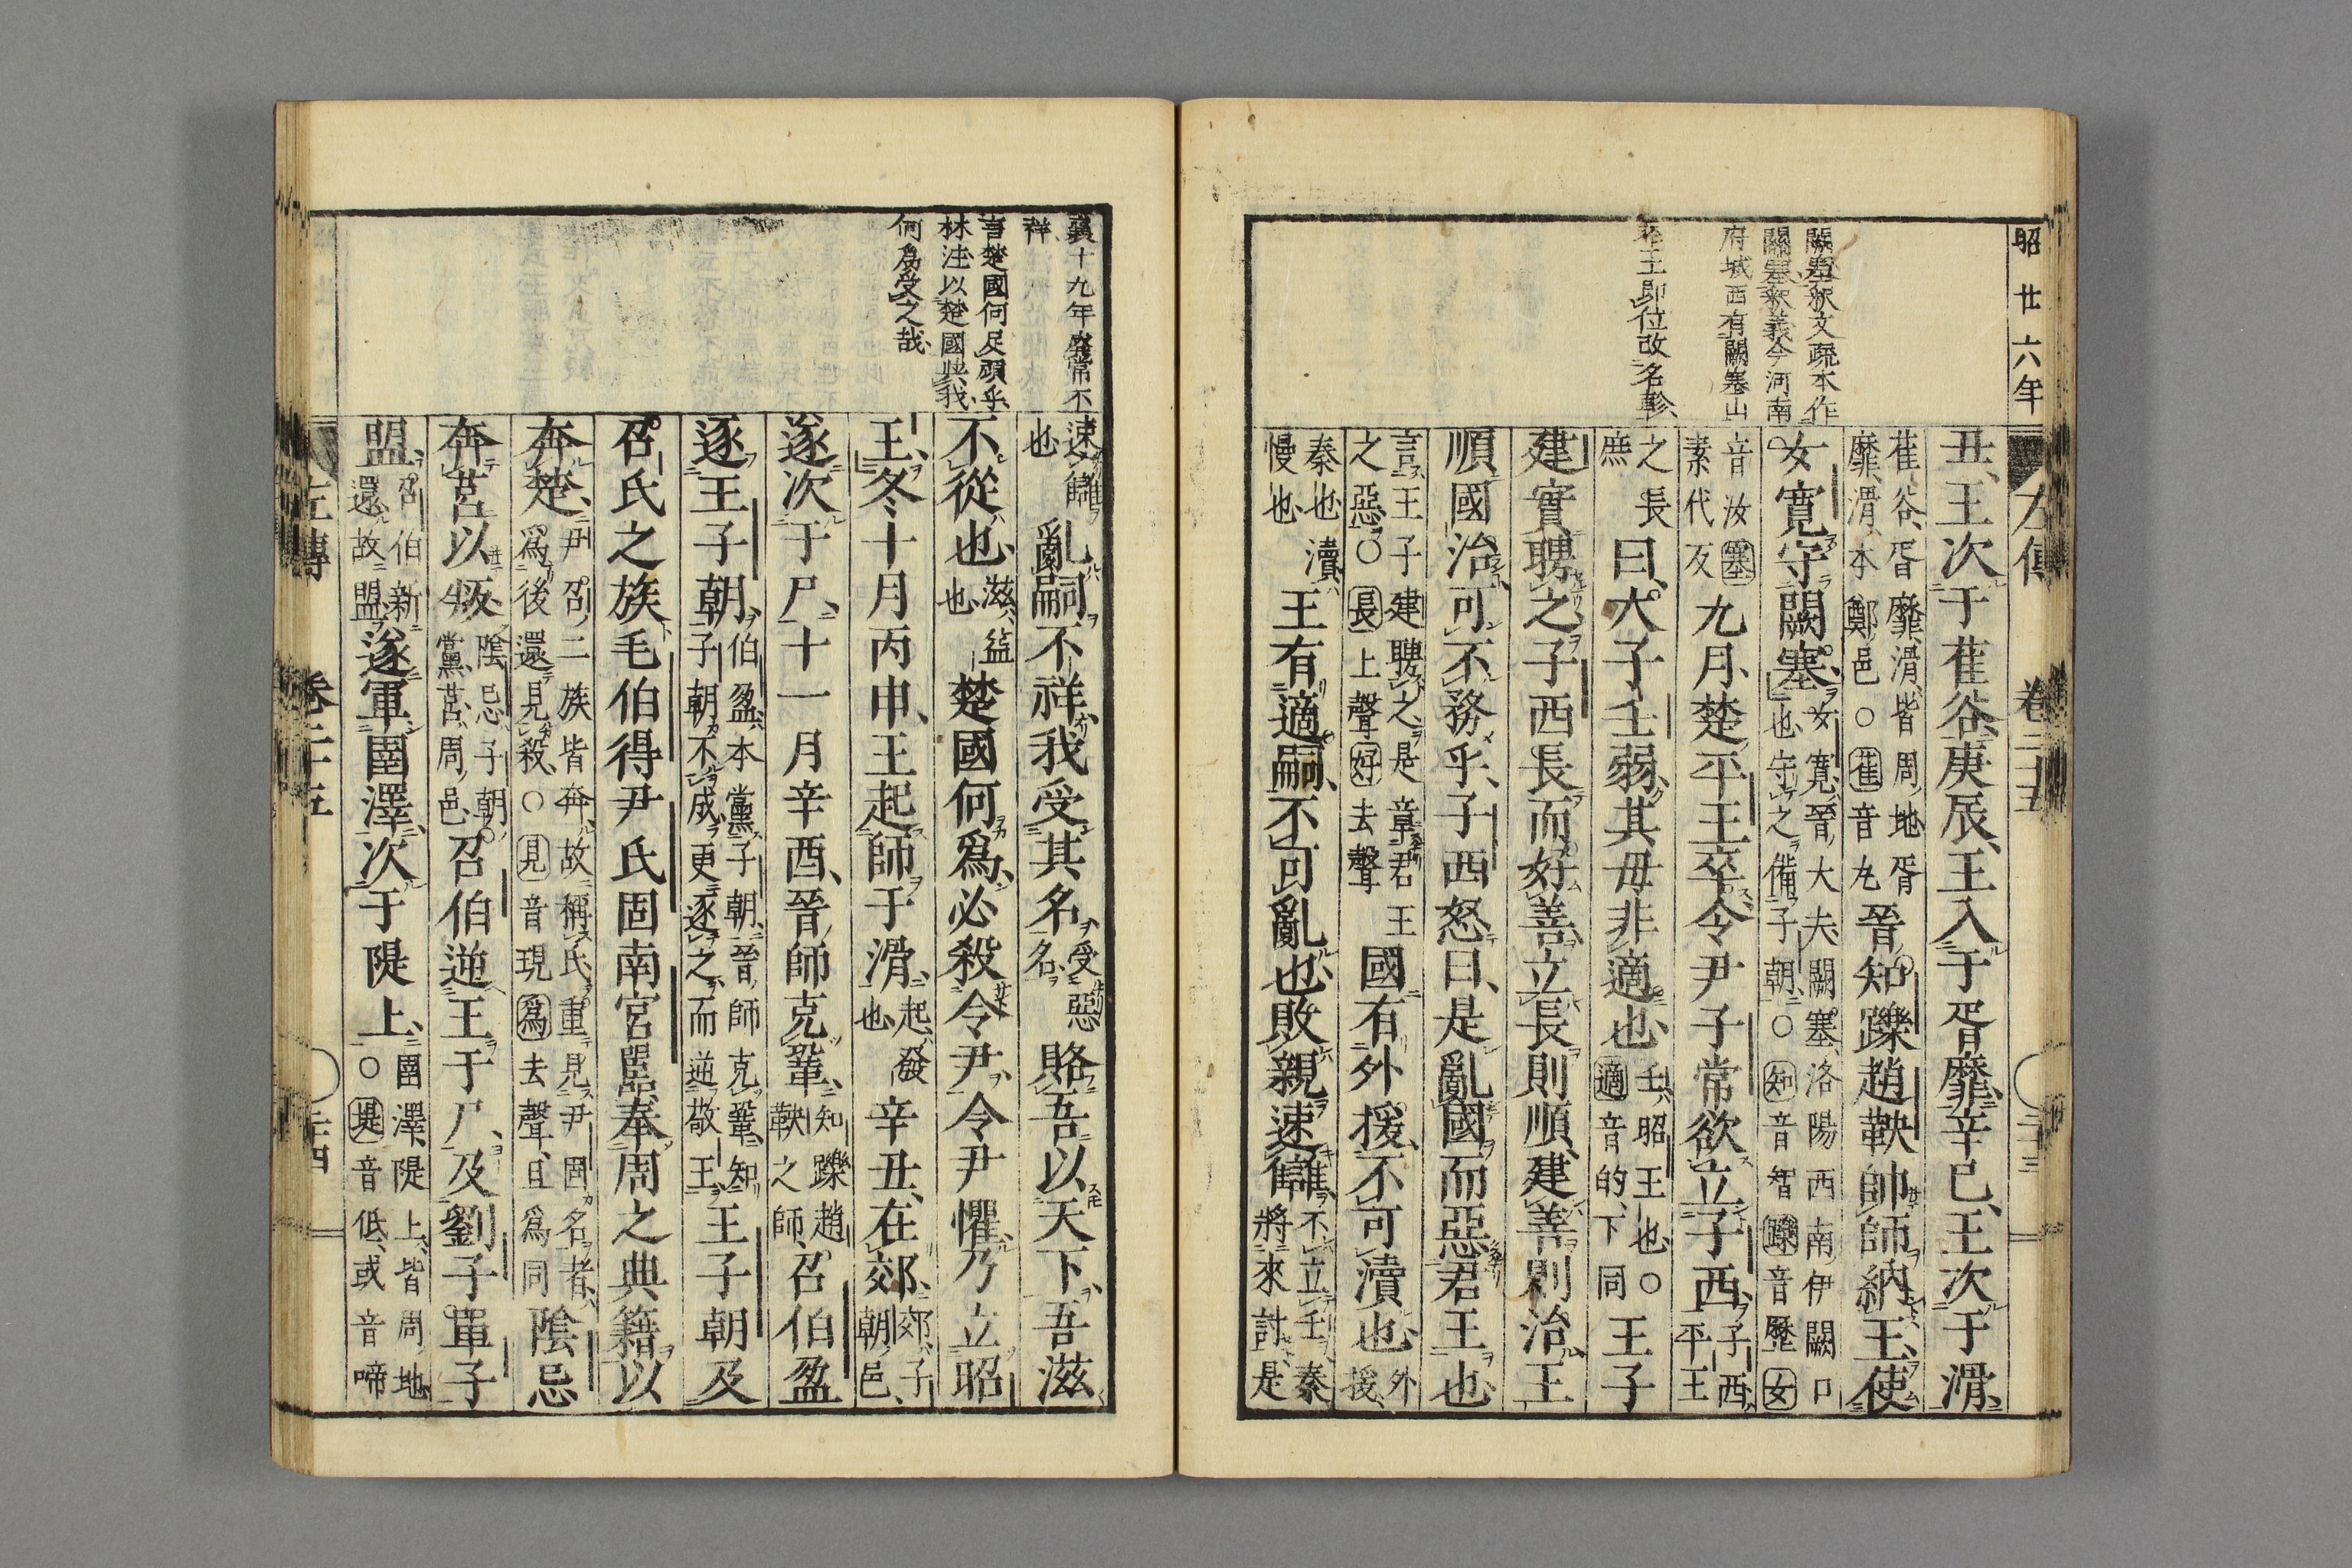 昭廿六年
左傳 卷二十五 二十三
闕塞釈文疏本作
關塞釈義今河南
府城西有闕塞山
王即位改名軫
丑王次于萑谷庚辰王入于胥靡辛巳王次于滑
萑谷胥靡滑皆周地胥靡滑本鄭邑○萑音丸晉知躒趙鞅帥師納王使
女寬守闕塞女寬晉大夫闕塞洛陽西南伊闕口也守之備子朝○知音智躒音歷女
音汝塞素代反九月楚平王卒令尹子常欲立子西子西平王
之長庶曰大子壬弱其母非適也壬昭王也○適音的下同王子
建實聘之子西長而好善立長則順建善則治王
順國治可不務乎子西怒曰是亂國而惡君王也
言王子建聘之是章君王之惡○長上聲好去聲國有外援不可瀆也外援
秦也瀆慢也王有適嗣不可亂也敗親速讎不立壬秦將來討是
速讎也亂嗣不祥我受其名受惡名賂吾以天下吾滋
不從也滋益也楚國何爲必殺令尹令尹懼乃立昭
王冬十月丙申王起師于滑起發也辛丑在郊郊子朝邑
遂次于尸十一月辛酉晉師克鞏知躒趙鞅之師召伯盈
逐王子朝伯盈本黨子朝晉師克鞏知子朝不成更逐之而逆敬王王子朝及
召氏之族毛伯得尹氏固南宮嚚奉周之典籍以
奔楚尹召二族皆奔故稱氏重見尹固名者爲後還見殺○見音現爲去聲且爲同陰忌
奔莒以叛陰忌子朝黨莒周邑召伯逆王于尸及劉子單子
盟召伯新還故盟遂軍圉澤次于隄上圉澤隄上皆周地○堤音低或音啼
襄十九年廢常不
祥
言楚國何足顧乎
林注以楚國與我
何爲受之哉
左傳 卷二十五 二十四